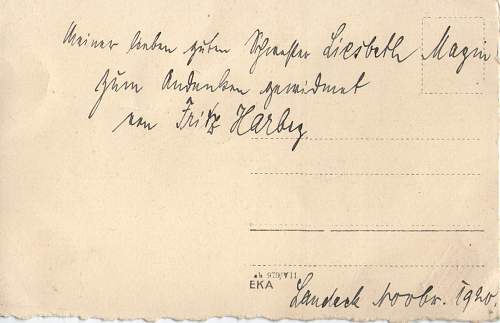 Meiner lieben guten Schwester Liesbeth Magin
zum Andenken gewidmet
von Fritz Harbig
970/VII
EKA
Landeck Novbr. 1920.